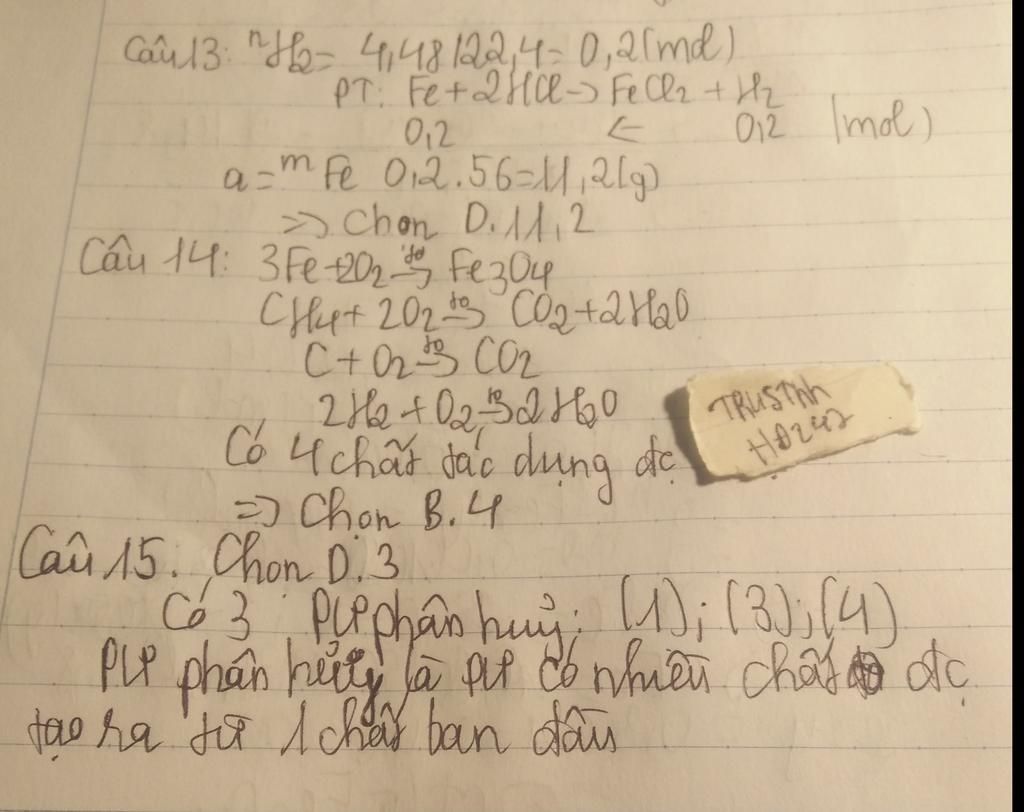 Câu 13: nH2 = 4,48/22,4 = 0,2 (mol)
PT: Fe + 2HCl -> FeCl2 + H2
0,2 <- 0,2 (mol)
a = mFe 0,2.56 = 11,2 (g)
=> Chọn D. 11,2
Câu 14: 3Fe + 2O2 -to-> Fe3O4
CH4 + 2O2 -to-> CO2 + 2H2O
C + O2 -to-> CO2
2H2 + O2 -to-> 2H2O
Có 4 chất tác dụng đc
=> Chọn B. 4
TRUSThh
HĐ247
Câu 15. Chọn D. 3
Có 3 PƯ phân huỷ: (1); (3); (4)
PƯ phân hủy là PƯ có nhiều chất đc
tạo ra từ 1 chất ban đầu